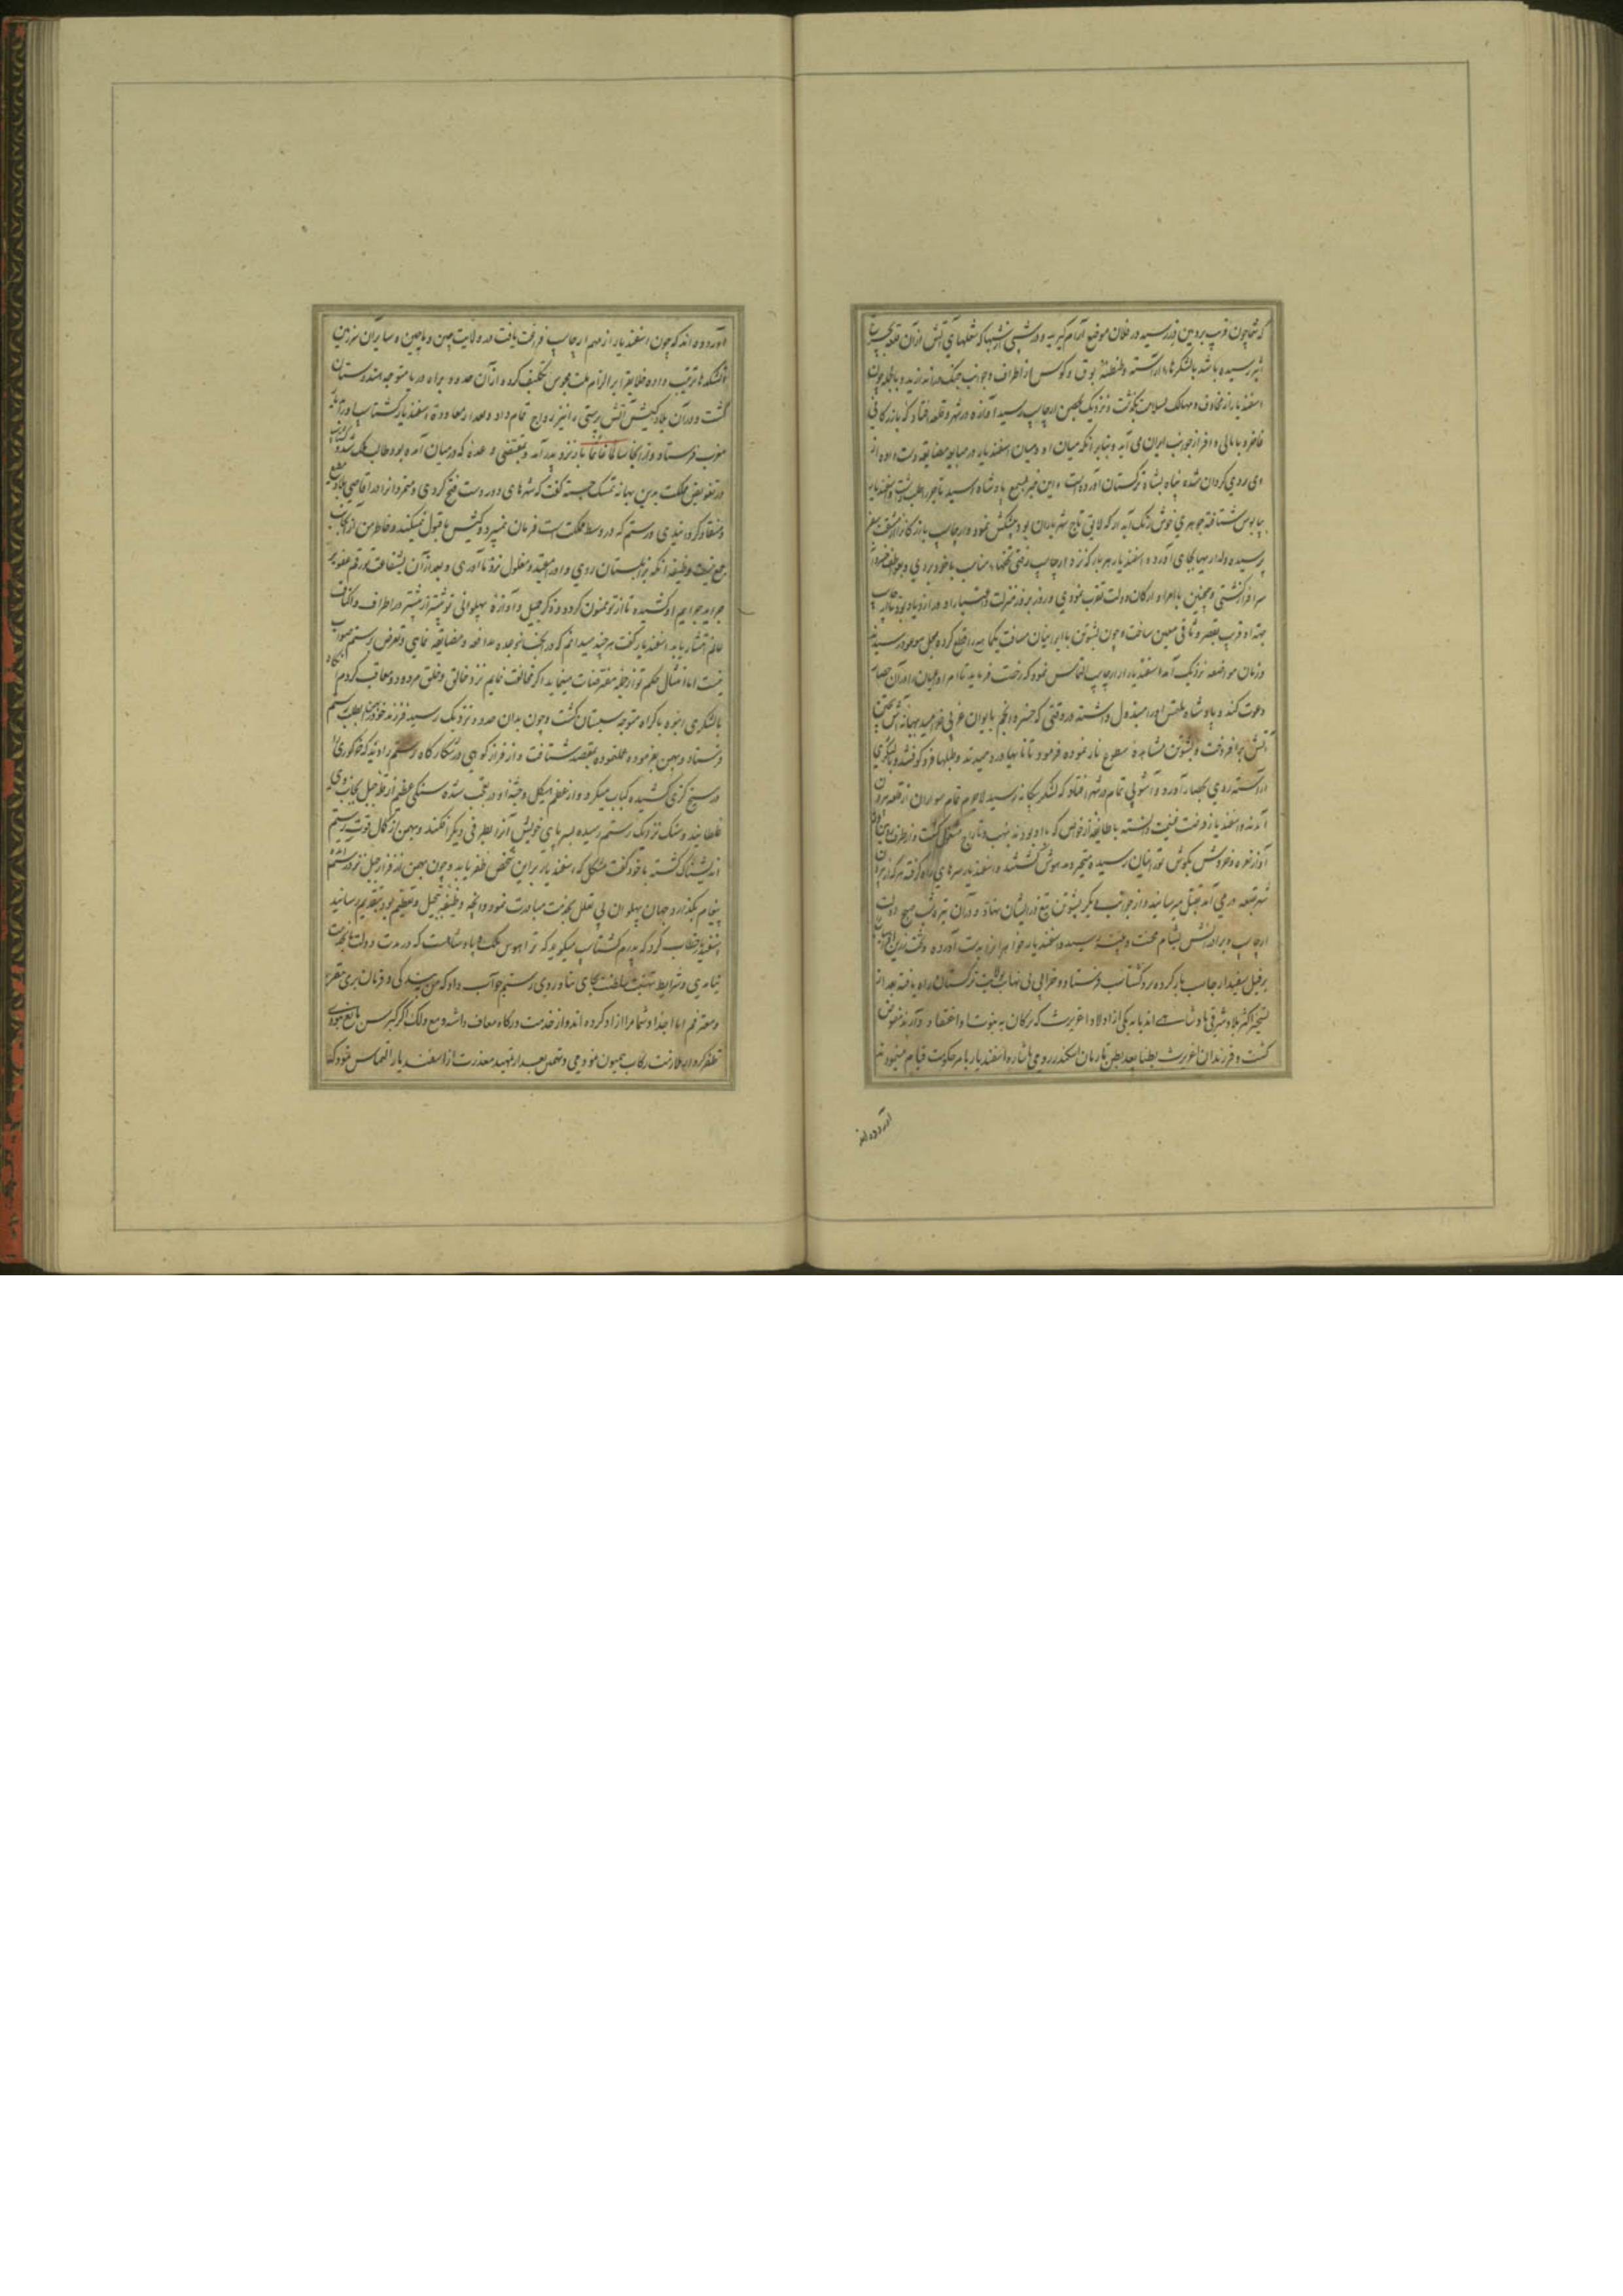 که شما چون قرب بروین دز رسید در فلان موضع آرام گیرید و در شبی از شبها که شعلهای آتش از آن قلعه
اثیر رسیده باشد با لشکرها آراسته و طنطنهٔ بوق و کوس از اطراف و جوانب جنگ در اندازید و بالجمله چون
اسفندیار از مخاوف و مهالک بسلامت بگذشت و نزدیک بحصن ارجاسپ رسید آوازه در شهر و قلعه افتاد که بازرگانی
فاخر و با مالی وافر از جانب ایران می آید و بنابر آنکه میان او و میان اسفندیار در مبایعه مضایقه دست داده از
وی روی گردان شده پناه بشاه ترکستان آورده است و این خبر بسمع پادشاه رسید تاجر را طلب داشت و اسفندیار
بپابوس شتافته جوهری خوش رنگ آبدار که لایق تاج شهریاران بود پیشکش نمود و ارجاسپ بازرگانرا از مشقت سفر
پرسیده دلداریها بجای آورد و اسفندیار هر بار که نزد ارجاسپ رفتی تحفهای مناسب با خود بردی و بعواطف
سرافراز گشتی و همچنین با امرا و ارکان دولت تقرب نمودی و روز بروز منزلت و اختیار او در ازدیاد بود
جهة او قرب بقصر وثاقی معین ساخت و چون بشوتن با ایرانیان مسافت یکماهه را قطع کرده بمحل موعود رسید
و زمان مواضعه نزدیک آمد اسفندیار از ارجاسپ التماس نمود که رخصت فرماید تا امرا و اعیان را در آن حصار
دعوت کند و پادشاه ملتمس او را مبذول داشته در وقتی که خسرو انجم بایوان غربی خرامید ببهانه
آتش برافروخت و بشوتن مشاهدهٔ سطوع نار نموده فرمود تا نایها در دمیدند و طبلها فرو کوفتند و با لشکری
آراسته روی بحصار آورد و آشوبی تمام در شهر افتاد که لشکر بیگانه رسید لاجرم تمام سواران از قلعه بیرون
آمدند و اسفندیار فرصت غنیمت دانسته با طایفهٔ از خواص که با او بودند بنهب و تاراج مشغول گشت و از طرفین
آواز نعره و خروش بگوش تورانیان رسیده متحیر و مدهوش گشتند و اسفندیار سرهای راه گرفته هر که از
شهر بقلعه در می آمد بقتل میرسانید و از جوانب دیگر بشوتن تیغ در ایشان نهاد و در آن تیره شب صبح دولت
ارجاسپ و برادرانش بشام محنت و نکبت رسیده اسفندیار خواهران را بدست آورده و تخت زرین
بر فیل سفید ارجاسپ بار کرده نزد گشتاسب فرستاد و خرابی بی نهایت بولایت ترکستان راه یافته بعد از
تسخیر اکثر بلاد شرقی پادشاهی اندیار به یکی از اولاد اغریرث که ترکان به نبوت او اعتقاد دارند مفوض
گشت و فرزندان اغریرث بطنا بعد بطن تا زمان اسکندر رومی باشاره اسفندیار بامر حکومت قیام مینمودند
آورده‌اند
آورده اند که چون اسفندیار از مهم ارجاسپ فراغت یافت در ولایت چین و ماچین و سایر آن سرزمین
آتشکدها ترتیب داده خلایق را بر التزام ملت مجوس تکلیف کرده از آن حدود براه دریا متوجه هندوستان
گشت و در آن بلاد کیش آتش پرستی را نیز رواج تمام داد و بعد از معاودت اسفندیار گشتاسپ او را
مغرب فرستاد و از آنجا سالما غانما باز نزد پدر آمد و بمقتضی وعده که در میان آمده بود طالب ملک شد و
در تفویض مملکت بدین بهانه تمسک جسته گفت که شهرهای دور دست فتح کردی و متمردانرا در اقاصی بلاد مطیع
و منقاد گردانیدی و رستم که در وسط مملکت است فرمان نمیبرد و کیش ما قبول نمیکند و خاطر من از
جمع نیست وظیفه آنکه بزابلستان روی و او را مقید و مغلول نزد ما آوری و بعد از آن بشفاعت تو رقم عفو بر
جراید جرایم او کشیده تا از تو ممنون گردد و ذکر جمیل و آوازهٔ پهلوانی تو بیشتر از پیشتر در اطراف و اکناف
عالم انتشار یابد اسفندیار گفت هر چند میدانم که در انجاز وعده مدافعه و مضایقه نمایی و تعرض رستم صواب
نیست اما امتثال حکم تو از جملهٔ مفترضات مینماید اگر مخالفت نمایم نزد خالق و خلق مردود و معاقب گردم
با لشکری انبوه باکراه متوجه سیستان گشت و چون بدان حدود نزدیک رسید فرزند خود بهمن بطلب رستم
فرستاد و بهمن بفرموده عمل نموده بمقصد شتافت و از فراز کوهی در شکارگاه رستم را دید که خر گوری را
در سیخ کزی کشیده کباب میکرد و از عظم هیکل و جثهٔ او در تعجب شده سنگی عظیم از قلهٔ جبل بجانب وی
غلطانید و سنگ نزدیک رستم رسیده بسر پای خویش آنرا بطرفی دیگر افکند و بهمن از کمال قوت رستم
اندیشناک گشته با خود گفت مشکل که اسفندیار بر این شخص ظفر یابد و چون بهمن از فراز جبل نزد رستم
پیغام بگذارد جهان پهلوان بی تعلل بخدمت مبادرت نمود و آنچه وظیفهٔ تبجیل و تعظیم بود بتقدیم رسانید
اسفندیار خطاب کرد که پدرم گشتاسپ میگوید که ترا هوس ملک و پادشاهیست که در مدت دولت ما بخدمت
نیامدی و شرایط تهنیت سلطنت بجای نیاوردی رستم جواب داد که من ببندگی و فرمان بری مقر
و معترفم اما اجداد شما مرا آزاد کرده اند و از خدمت درگاه معاف داشته و مع ذلک اگر کبر سن مانع نبودی
تظفر کردار ملازمت رکاب همیون نمودمی و تهمتن بعد از تمهید معذرت از اسفندیار التماس نمود که